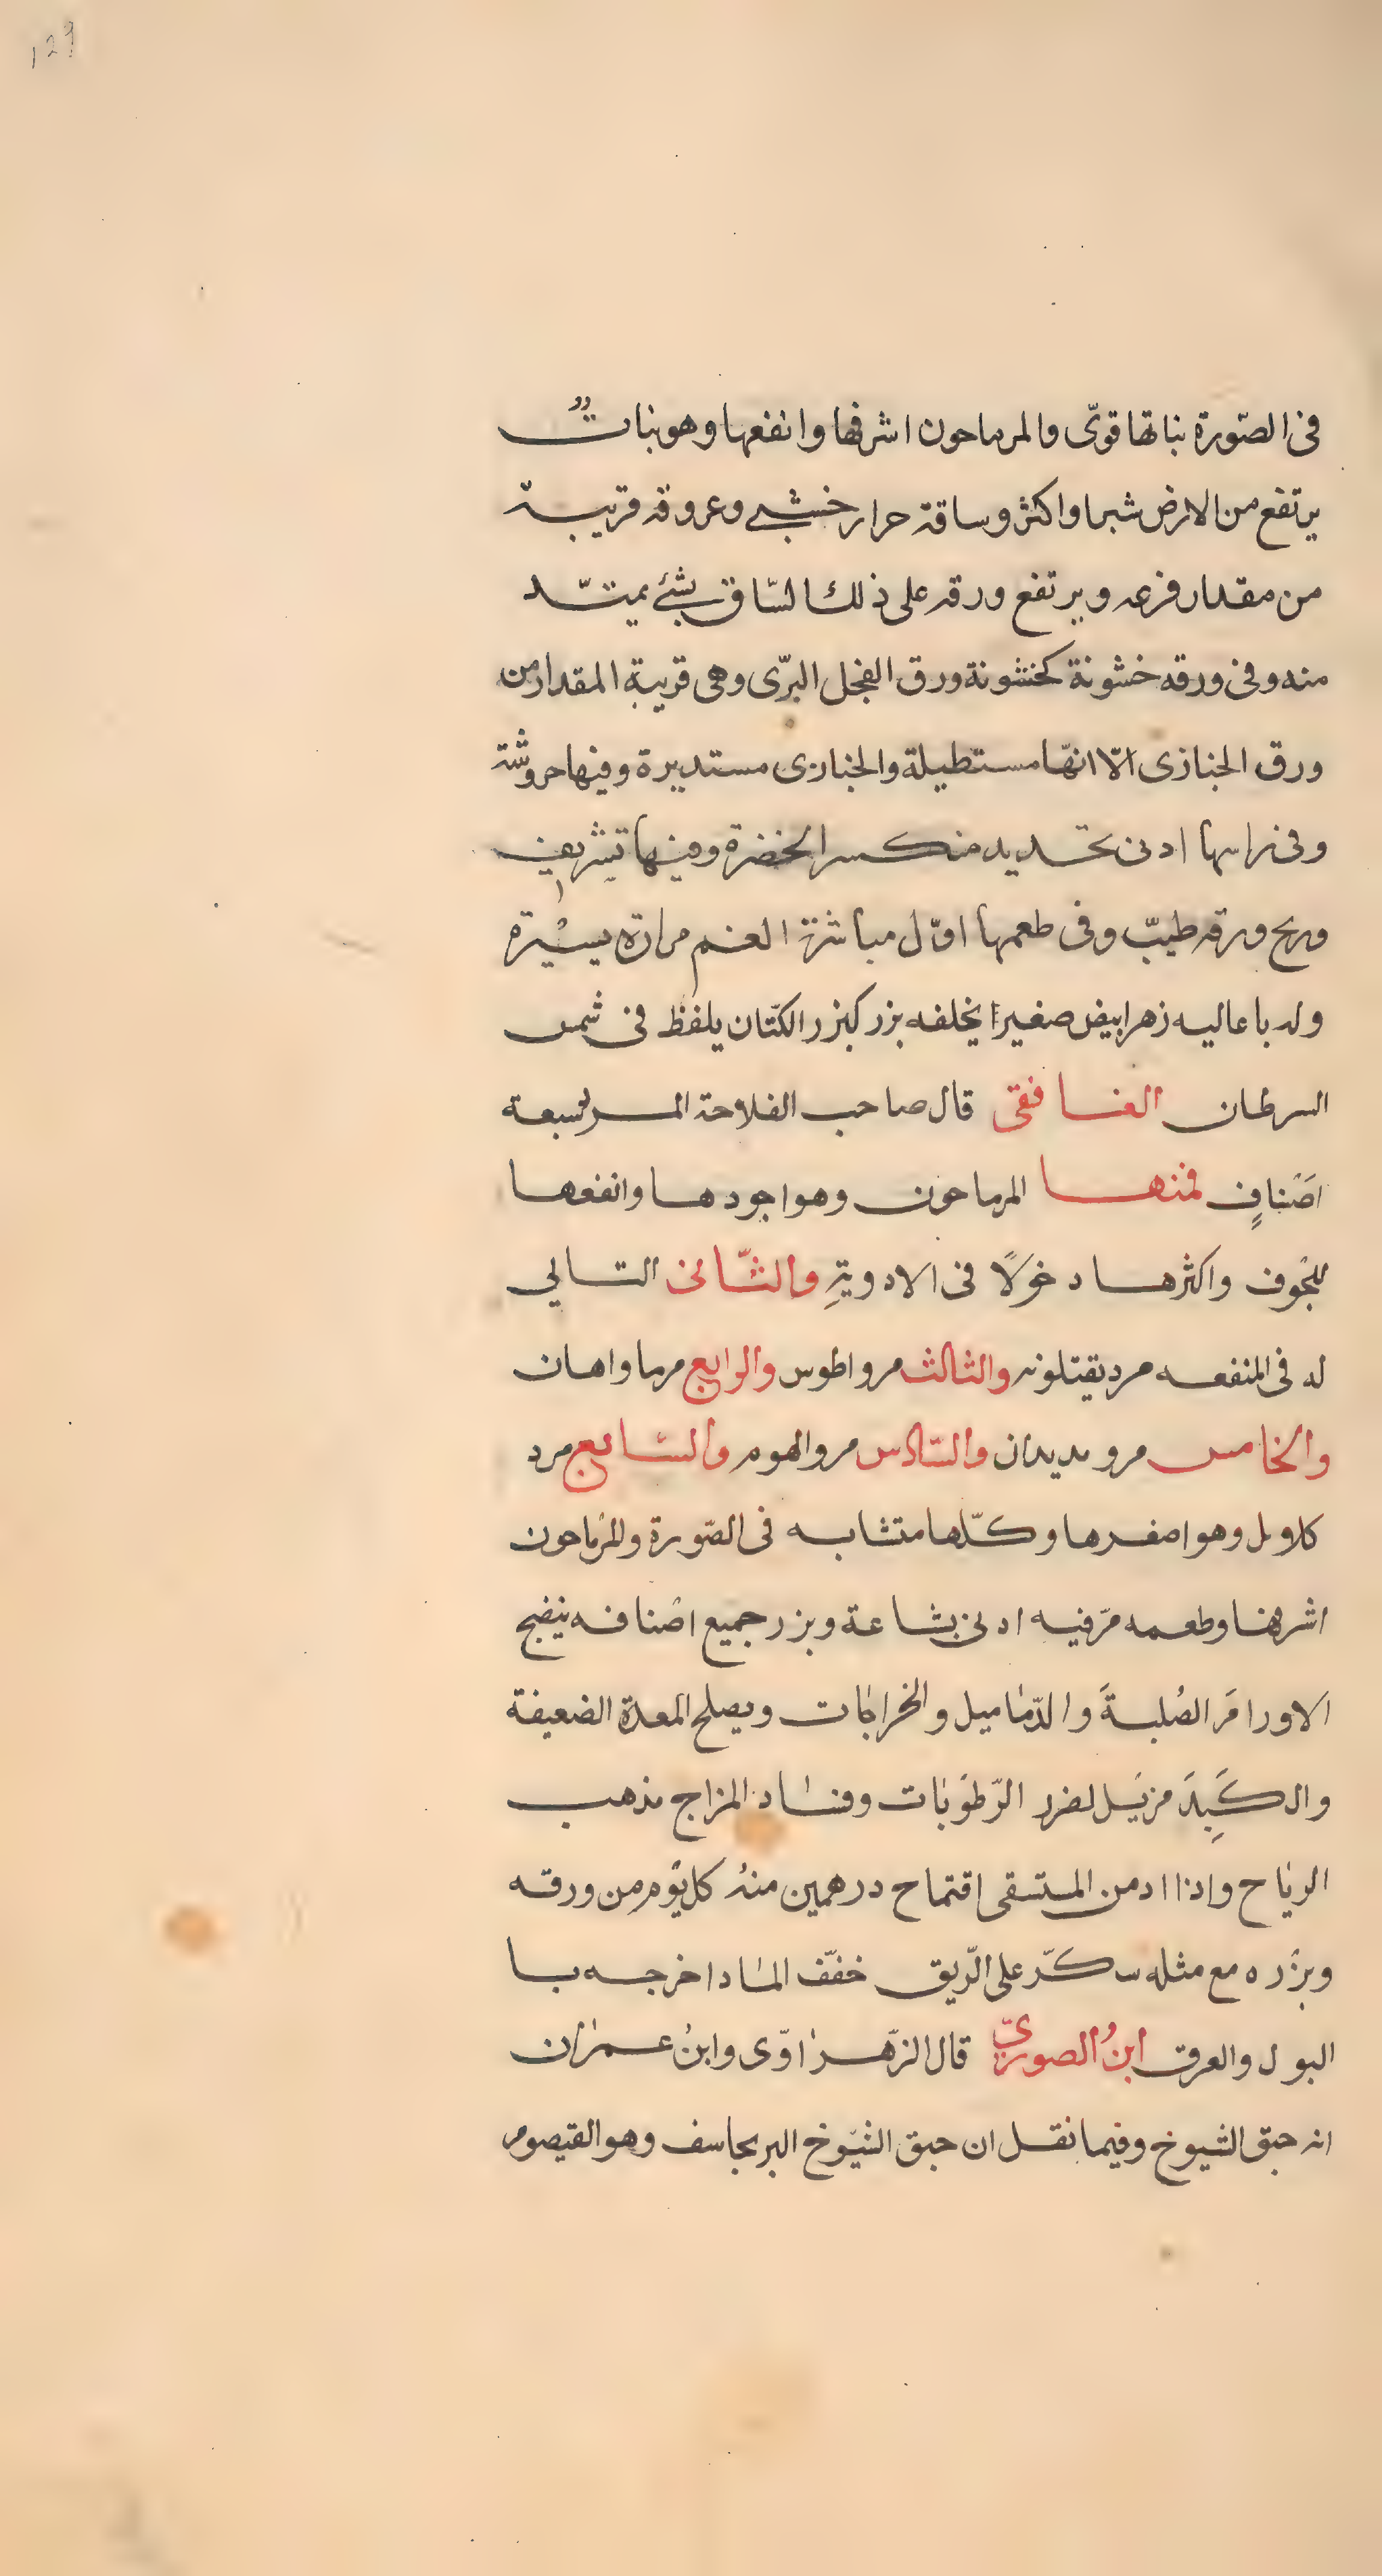 129
فى الصّورة نباتها قوىّ والمرماحون اشرفها وانفعها وهو نباتٌ
يرتفع من الارض شبرا واكثر وساقة حرار خشبى وعروقه قريبة
من مقدار فرعه ويرتفع ورقه على ذلك السّاق بشئ يمتدّ
منه وفى ورقه خشونة كخشونة ورق الفجل البرّى وهى قريبة المقدار من
ورق الخبازى الّا انهّا مستطيلة والخبازى مستديرة وفيها حروشة
وفى راسها ادنى تحديد منكسر الخضرة وفيها تشريف
وريح ورقه طيبّ وفى طعمها اوّل مباشرة الفم مرارة يسيرة
وله باعاليه زهر ابيض صغيرا يخلفه بزر كبزر الكتّان يلفظ فى شمس
السرطان الغافقى قال صاحب الفلاحة المر لسبعة
اصنافٍ فمنها المرماحون وهو اجودها وانفعها
للجوف واكثرها دخولًا فى الادويةِ والثّانى التالي
له فى المنفعه مرد يقتلونه والثالث مرواطوس والرابع مرماواهان
والخامس مرو مديدان والسّادس مروالهوم والسّابع مرد
كلاوىل وهو اصفرها وكلّها متشابه فى الصّورة والمرماحون
اشرفها وطعمه مرّ فيه ادنى بشاعة وبزر جميع اصنافه ينضج
الاورامَ الصُلبةَ والدّماميل والخراجات ويصلح المعدة الضعيفة
والكَبِدَ مزيَل لضرر الرّطوبات وفساد المزاج مذهب
الرياح واذا ادمن المستسقى اقتماح درهمين منهُ كل يوم من ورقه
وبزره مع مثله سكّر على الرّيق خففّ الما داخرجه با
البول والعرق ابنُ الصورىّ قال الزّهراوّى وابنُ عمران
انه حبق الشيوخ وفيما نقل ان حبق الشيوخ البرنجاسف وهو القيصوم